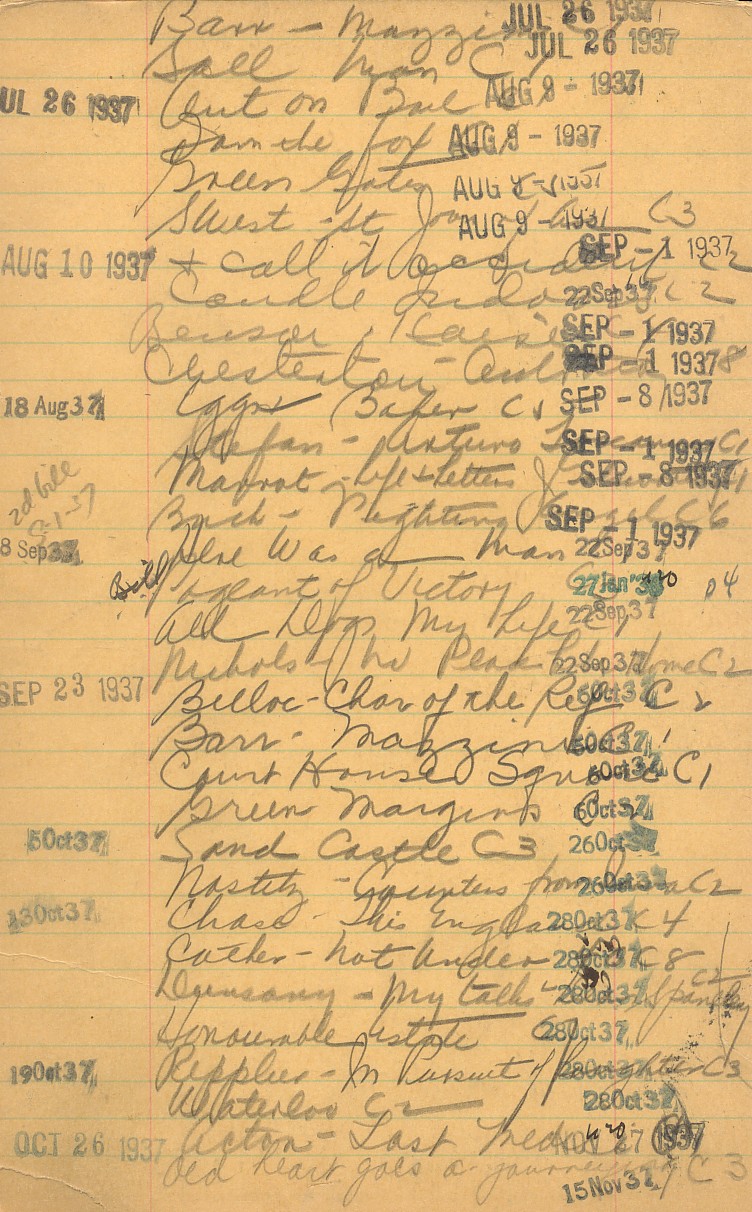 Barr - Mazzini JUL 26 1937
JUL 26 1937
Sall Man C1
UL 26 1937 Out on Bail AUG 9 - 1937
Damn the fox AUG 9 - 1937
Green Gates AUG 9 - 1937
Swest - St Joan of Arc C3
AUG 9 - 1937
AUG 10 1937 + call it accident C2 SEP - 1 1937
Candle Indoors C2 22 Sep 37
Benson, Kaiser SEP - 1 1937
Chesterton - SEP - 1 1937 8
18 Aug 37 Baker C1 SEP - 8 1937
Stefan - Arturo Toscanini C1 SEP - 1 1937
Marrot - Life & Letters J SEP - 8 1937
2d bill
8-1-37
Bach - Fighting C6 SEP - 1 1937
8 Sep 37 Here Was a Man 22 Sep 37
Bill Pageant of Victory 27 Jan '38 p4
All Dogs My Life C1 22 Sep 37
Nichols - No Place like Home C2 22 Sep 37
SEP 23 1937 Belloc - Char of the Ref C2 6 Oct 37
Barr - Mazzini C1 6 Oct 37
Court House Square C1 6 Oct 37
Green Margins C2 6 Oct 37
5 Oct 37 Sand Castle C3 26 Oct 37
Nostitz - Counters from C2 26 Oct 37
13 Oct 37 Chase - This England C4 28 Oct 37
Cather - Not Under C8 28 Oct 37
Dunsany - My talks Spanley C2 28 Oct 37
Honourable Estate 28 Oct 37
19 Oct 37 Repplier - In Pursuit of Laughter C3 28 Oct 37
Waterloo C2 28 Oct 37
OCT 26 1937 Acton - Last Med NOV 27 1937
Old heart goes a journeying C3
15 Nov 37